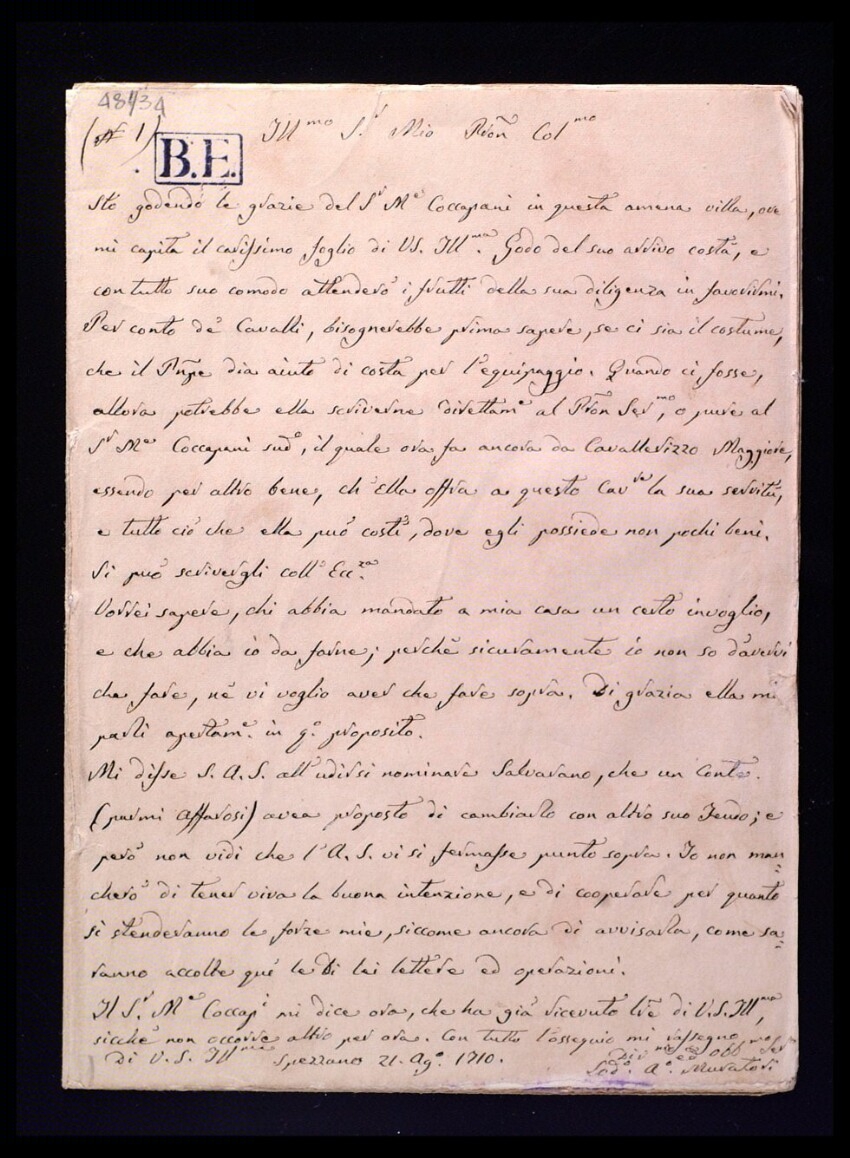 48434
(N 1) Ill^mo S.^r Mio Pron Col^mo
B.E.
Sto godendo le grazie del S^r M^e Coccapani in questa amena villa, ove
mi capita il carissimo foglio di VS. Ill^ma. Godo del suo arrivo costà, e
con tutto suo comodo attenderò i frutti della sua diligenza in favorirmi.
Per conto de' Cavalli, bisognerebbe prima sapere, se ci sia il costume,
che il Pnpe dia aiuto di costa per l'equipaggio. Quando ci fosse,
allora potrebbe ella scriverne direttam^e al Pron Ser^mo, o pure al
S^r M^e Coccapani sud^o, il quale ora fa ancora da Cavallerizzo Maggiore,
essendo per altro bene, ch'Ella offra a questo Cav^re la sua servitù,
e tutto ciò che ella può costì, dove egli possiede non pochi beni.
Si può scrivergli coll'Ecc^za.
Vorrei sapere, chi abbia mandato a mia casa un certo invoglio,
e che abbia io da farne; perché sicuramente io non so d'avervi
che fare, né vi voglio aver che fare sopra. Di grazia ella mi
parli apertam^e. in q^o. proposito.
Mi disse S. A. S. all'udirsi nominare Salvarano, che un Conte.
(parmi Affarosi) avea proposto di cambiarlo con altro suo Feudo; e
però non vidi che l'A. S. vi si fermasse punto sopra. Io non man=
cherò di tener viva la buona intenzione, e di cooperare per quanto
si stenderanno le forze mie, siccome ancora di avvisarla, come sa=
ranno accolte qui le Di lei lettere ed operazioni.
Il S^r M^e Coccap^i mi dice ora, che ha già ricevuto lre di V.S. Ill^ma,
sicché non occorre altro per ora. Con tutto l'ossequio mi rassegno
Di V. S. Ill^ma Spezzano 21. Ag^o. 1710.
Div^mo ed Obb^mo Ser^
Lod^o. A^o. Muratori